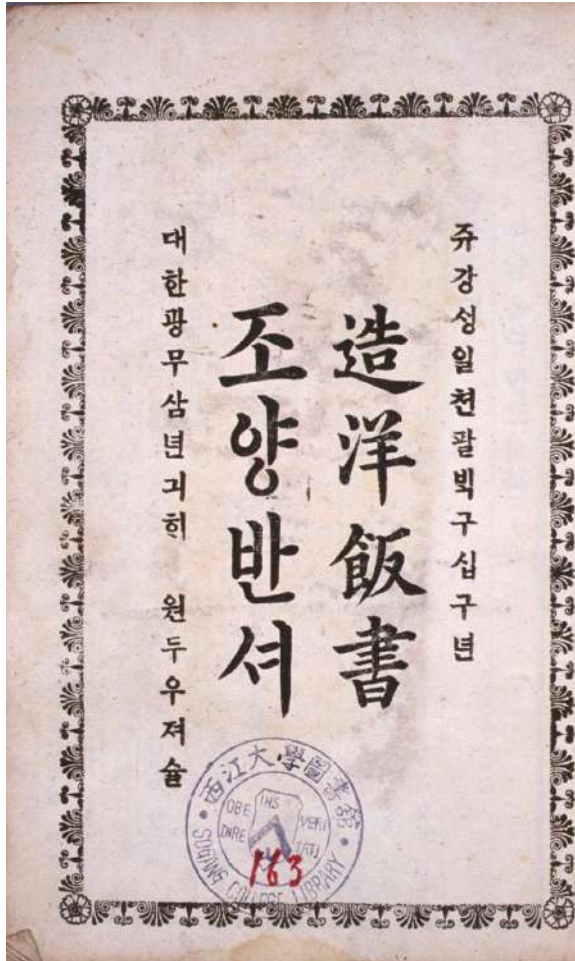 쥬강싱일쳔팔빅구십구년
造洋飯書
조양반셔
대한광무삼년긔희 원두우져슐
西江大學圖書舘
OBE
DIRE
IHS
VERI
TATI
SOGANG COLLEGE LIBRARY
163